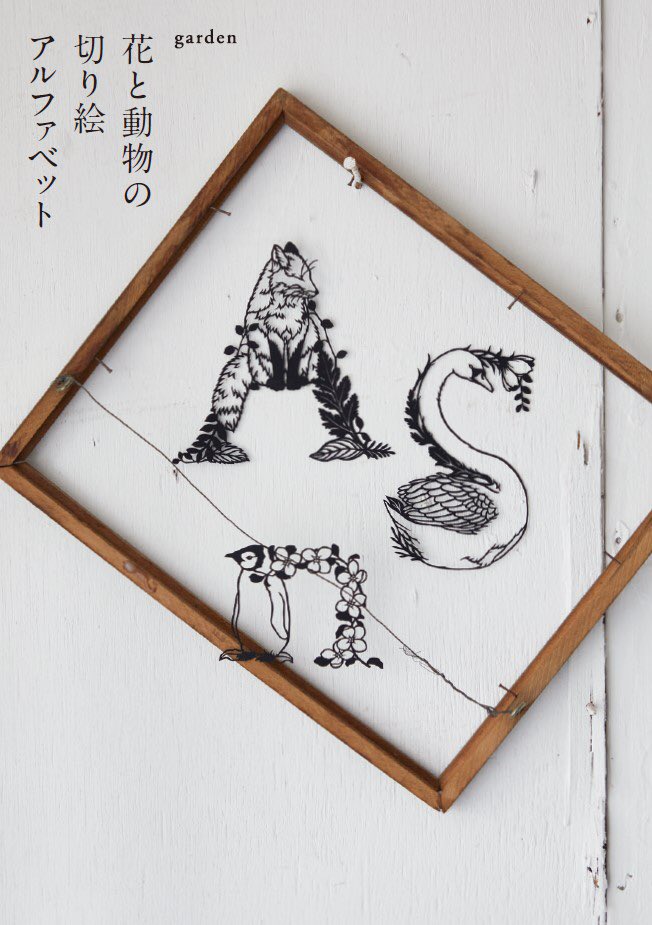 garden
花と動物の
切り絵
アルファベット